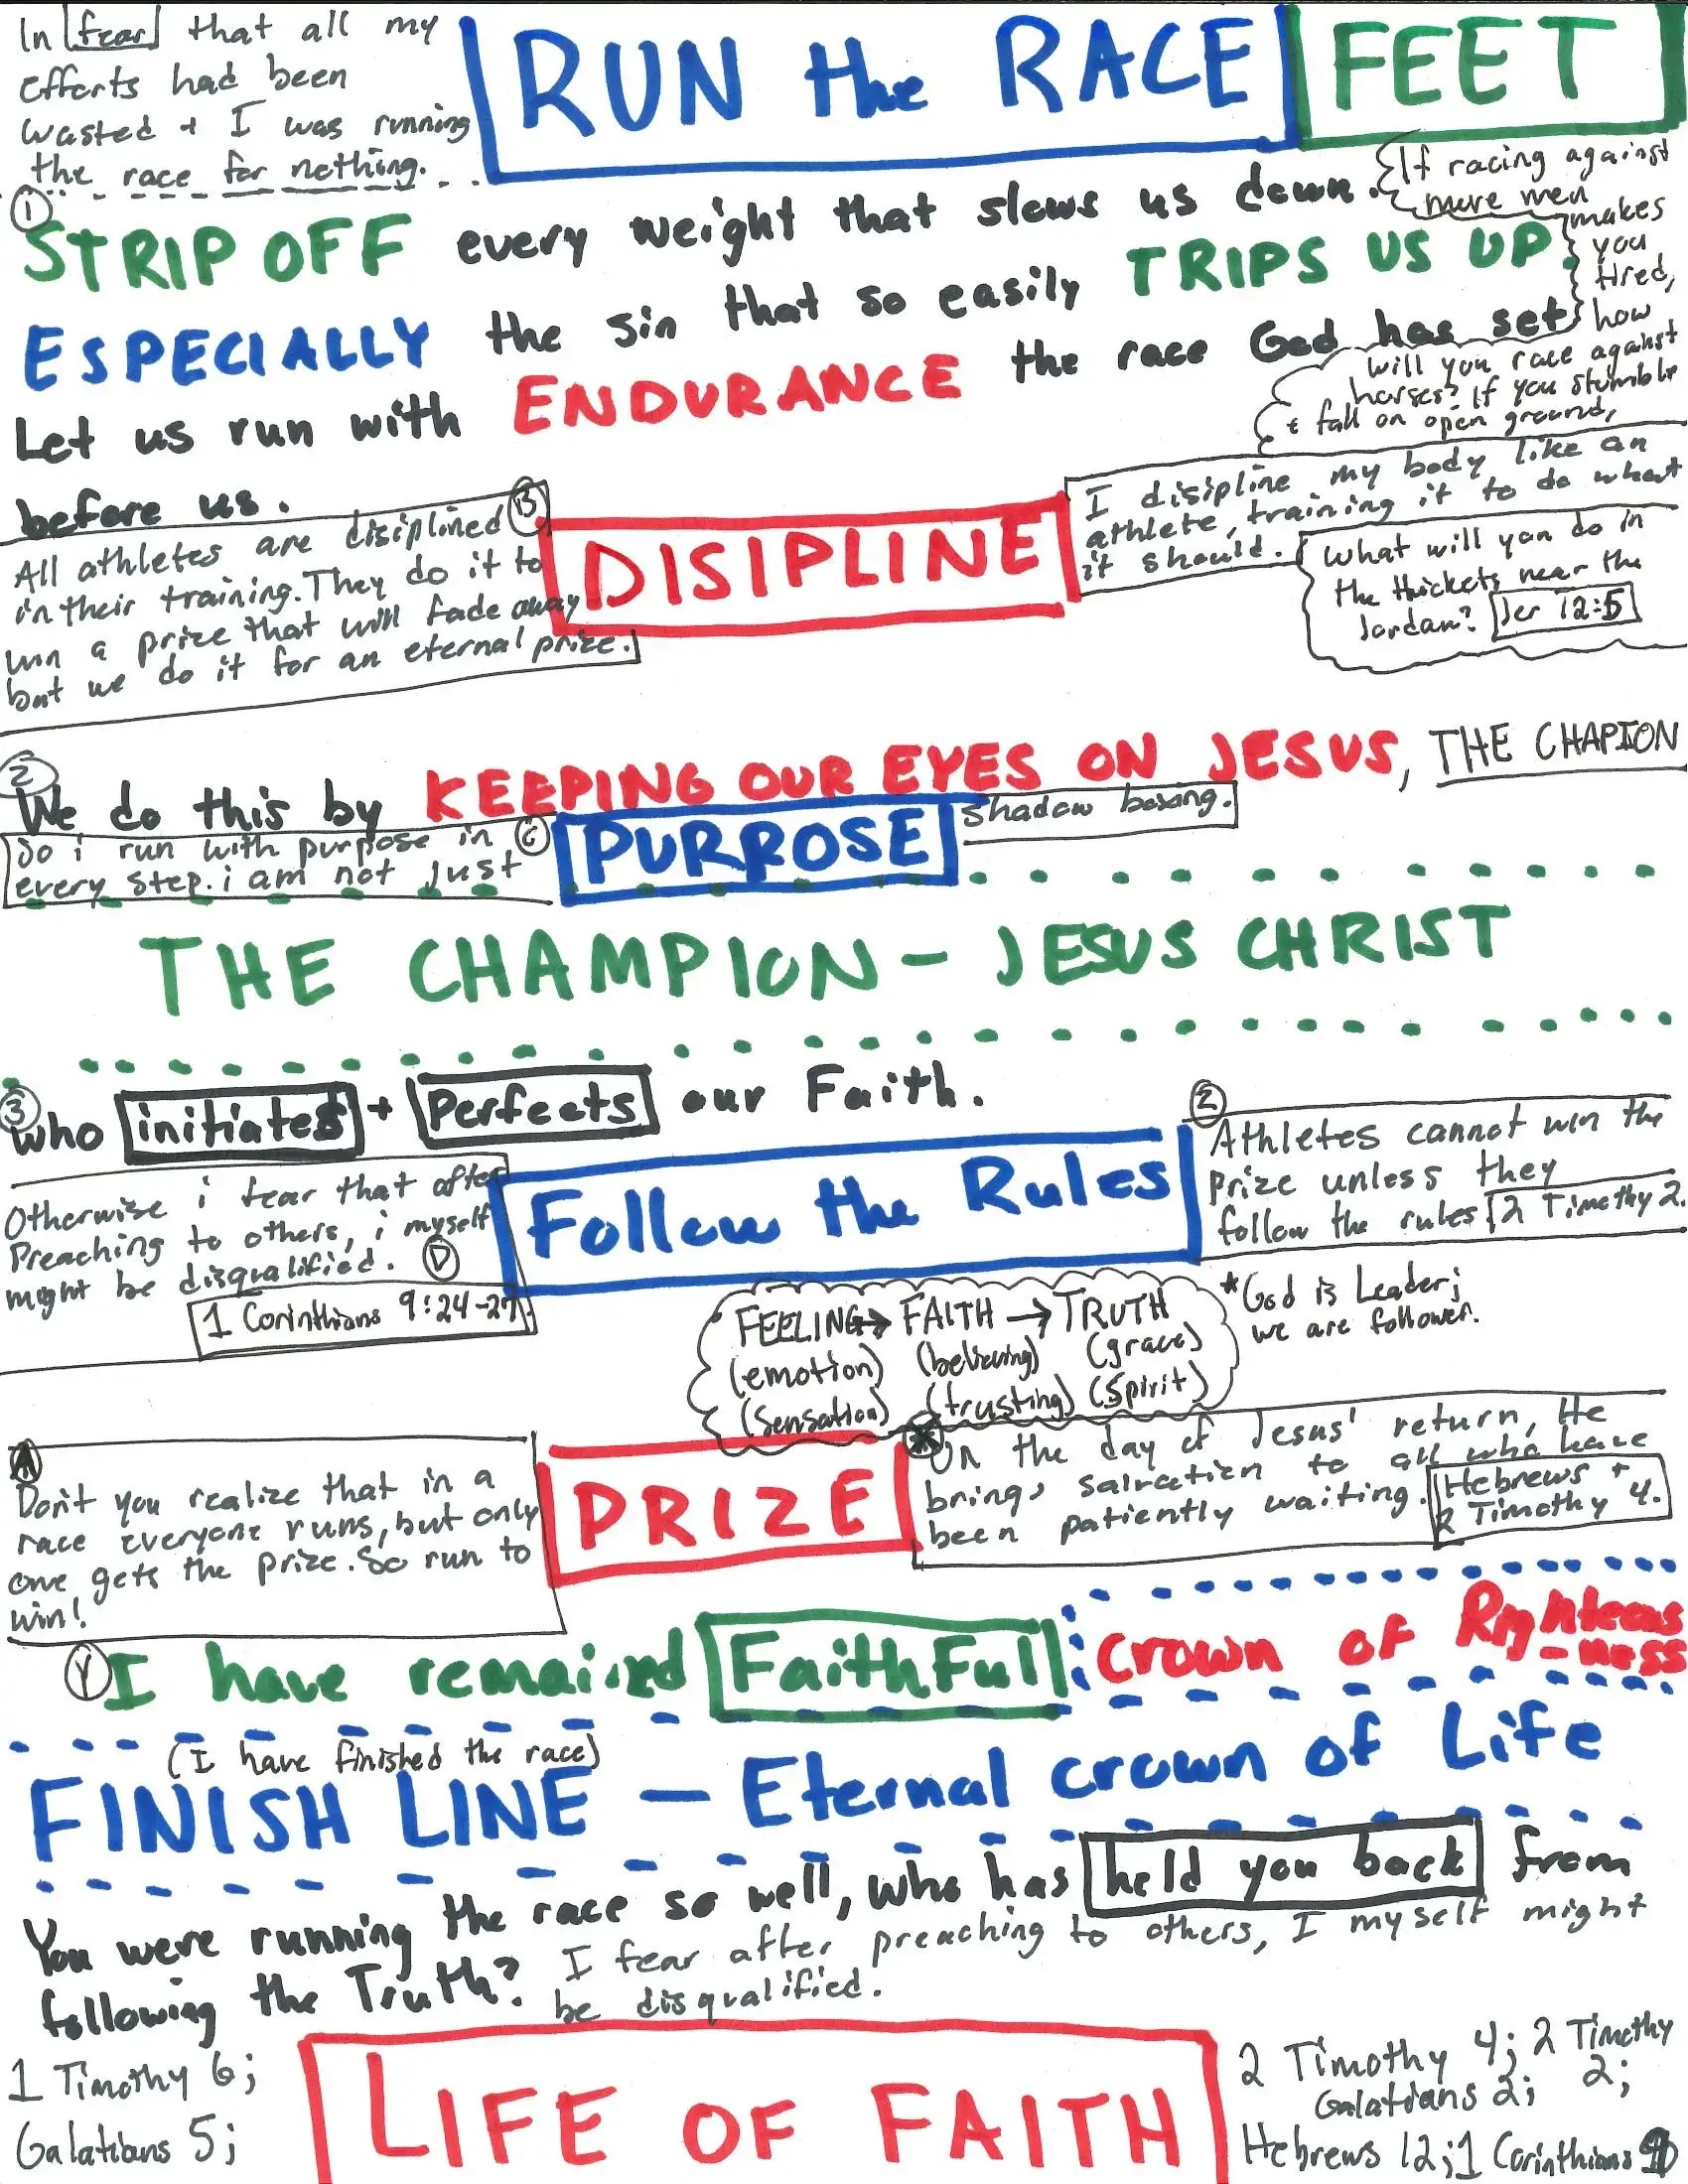 In fear that all my
efforts had been
wasted + I was running
the race for nothing.
RUN the RACE
FEET
① STRIP OFF every weight that slows us down.
ESPECIALLY the sin that so easily TRIPS US UP.
Let us run with ENDURANCE the race God has set
before us.
If racing against
mere men
makes
you
tired,
how
will you race against
horses? If you stumble
& fall on open ground,
What will you do in
the thickets near the
Jordan? Jer 12:5
B
All athletes are disiplined
in their training. They do it to
win a prize that will fade away
but we do it for an eternal prize.
DISIPLINE
I disipline my body like an
athlete, training it to do what
it should.
② We do this by KEEPING OUR EYES ON JESUS, THE CHAPION
So i run with purpose in
every step. i am not just
C
PURPOSE
shadow boxing.
THE CHAMPION - JESUS CHRIST
③ who initiates + Perfects our Faith.
Otherwise i fear that after
Preaching to others, i myself
might be disqualified. D
1 Corinthians 9:24-27
Follow the Rules
Z
Athletes cannot win the
prize unless they
follow the rules. 2 Timothy 2.
*God is Leader;
we are follower.
FEELING → FAITH → TRUTH
(emotion) (believing) (grace)
(sensation) (trusting) (spirit)
A
Don't you realize that in a
race everyone runs, but only
one gets the prize. So run to
win!
PRIZE
On the day of Jesus' return, He
brings salvation to all who have
been patiently waiting. Hebrews +
2 Timothy 4.
Y I have remained FaithFul: crown of Righteous
-ness
(I have finished the race)
FINISH LINE - Eternal crown of Life
You were running the race so well, who has held you back from
following the Truth? I fear after preaching to others, I myself might
be disqualified.
1 Timothy 6;
Galatians 5;
LIFE OF FAITH
2 Timothy 4; 2 Timothy
2;
Galatians 2;
Hebrews 12; 1 Corinthians